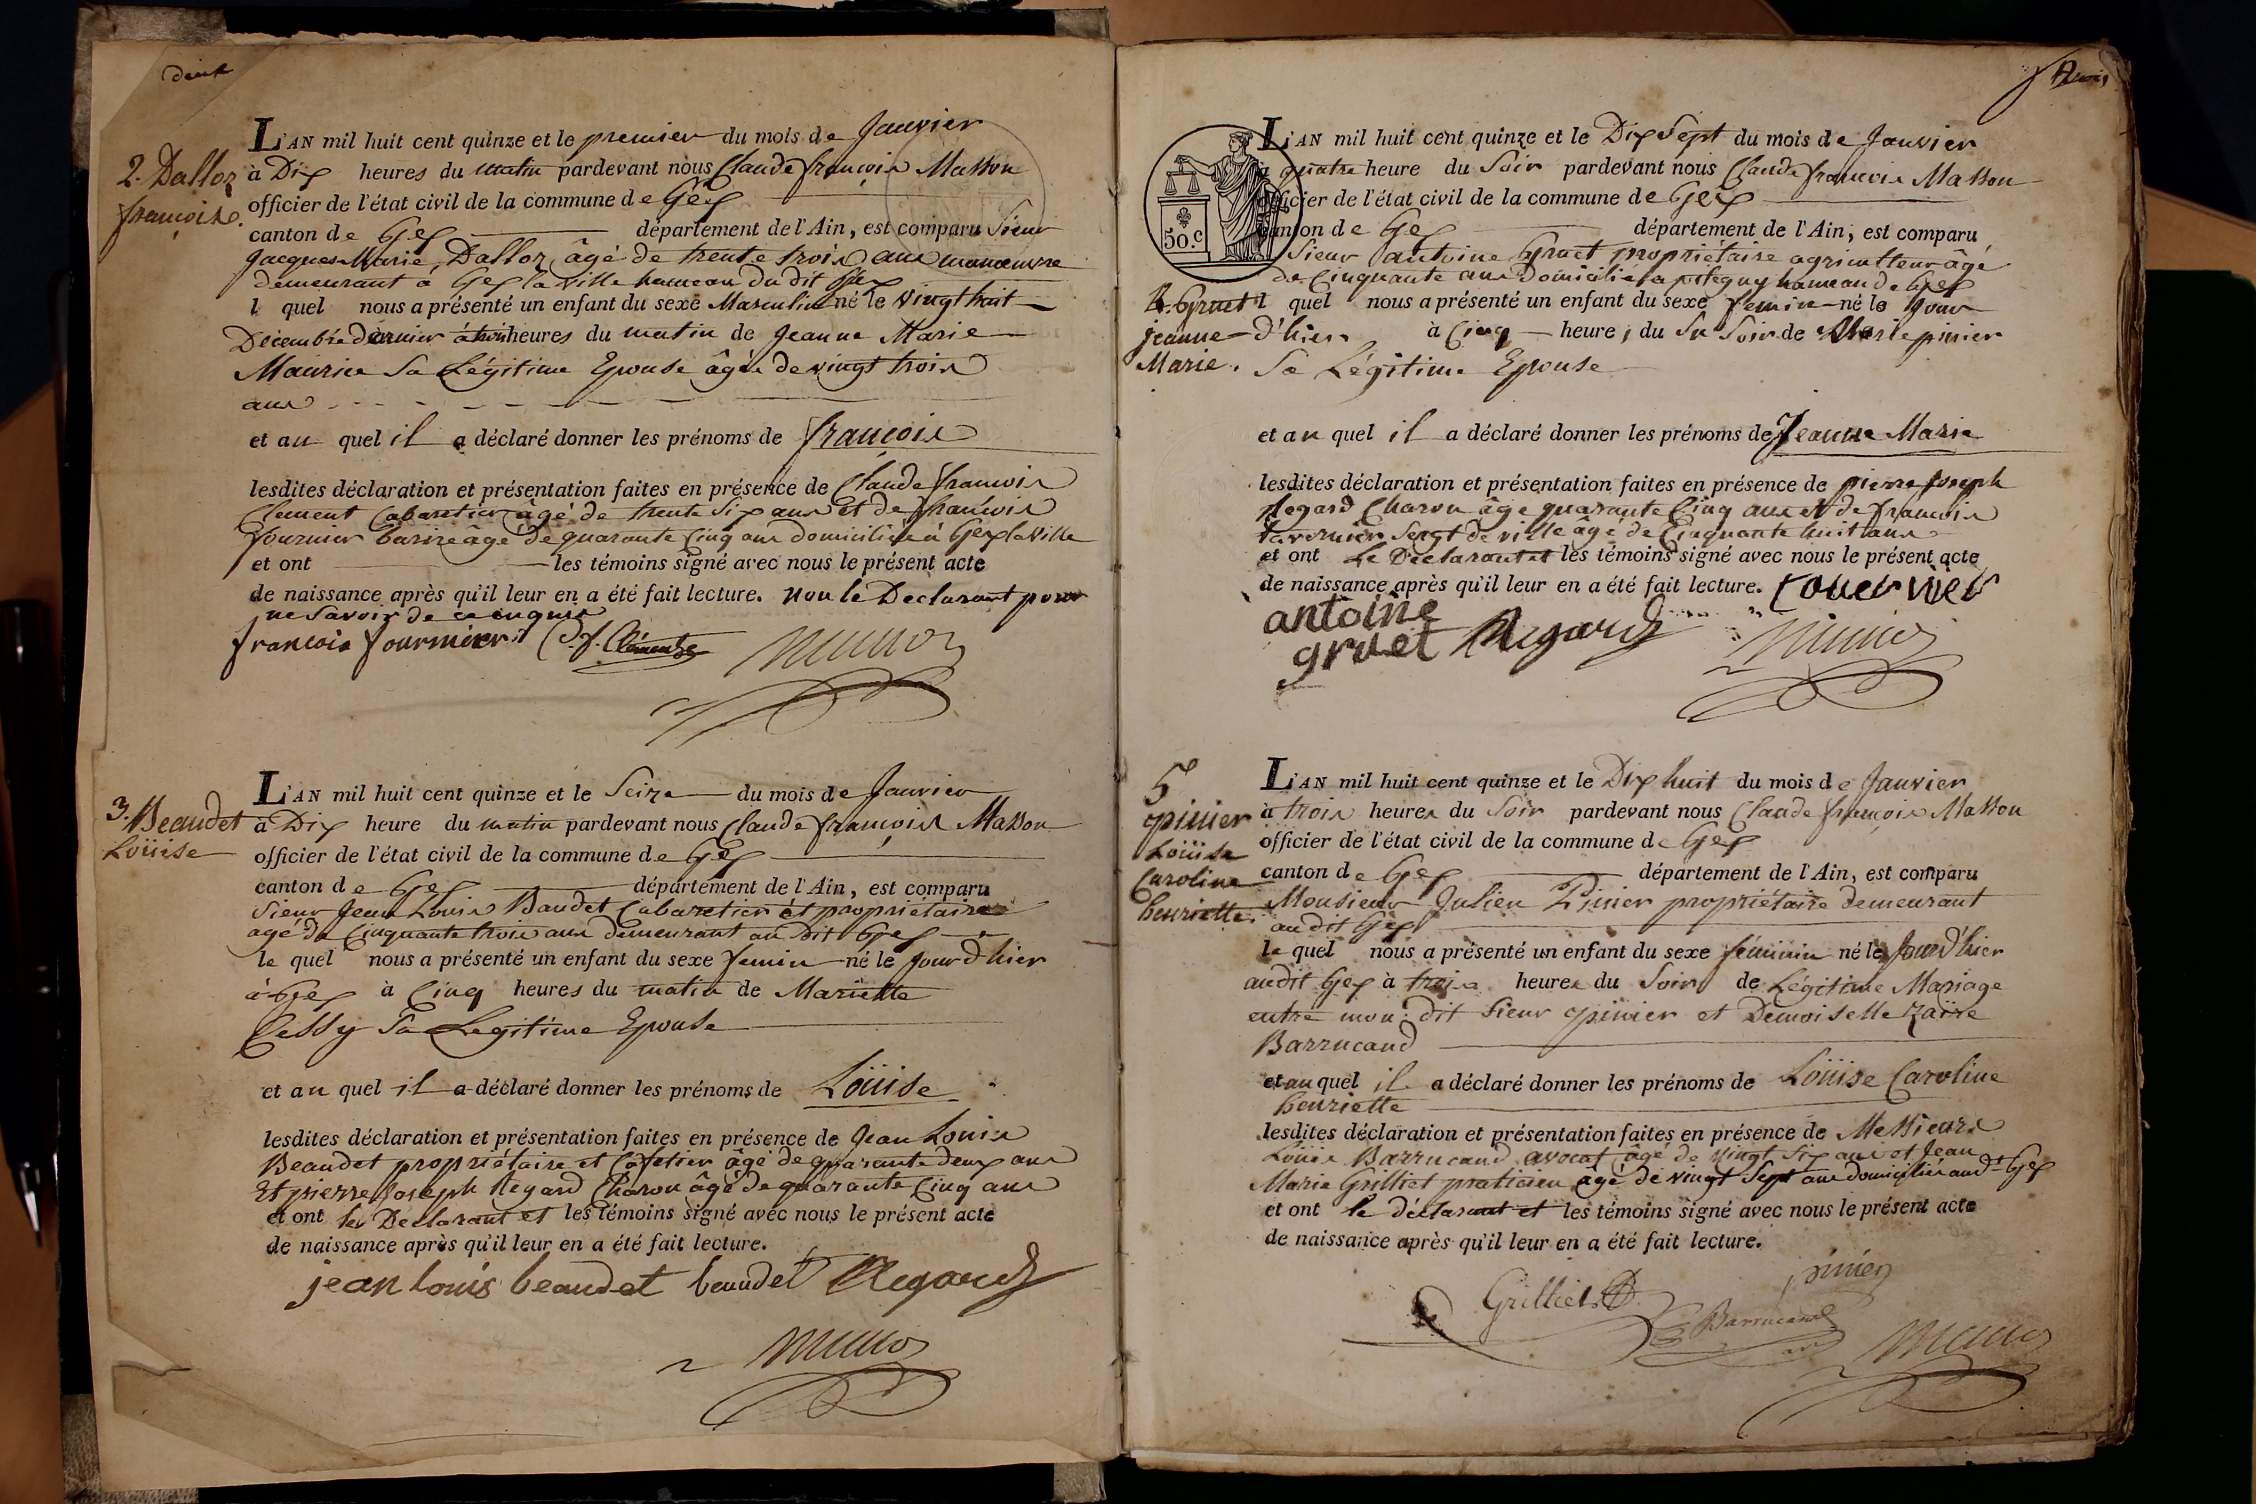 deux
L'AN mil huit cent quinze et le premier du mois de Janvier
2. Dalloz
françois.
à Dix heures du matin pardevant nous Claude françois Masson
officier de l'état civil de la commune de Gex
canton de Gex département de l'Ain, est comparu Sieur
Jacques Marie Dalloz âgé de trente trois ans manoeuvre
demeurant à Gex la ville hameau du dit Gex
l quel nous a présenté un enfant du sexe Masculin né le vingt huit
Decembre dernier à heures du matin de Jeanne Marie
Maurice Sa Légitime Epouse âgée de vingt trois
ans
et au quel il a déclaré donner les prénoms de françois
lesdites déclaration et présentation faites en présence de Claude francois
Clement Cabaretier âgé de trente Six ans et de françois
fournier âgé de quarante Cinq ans domiciliés à Gex la Ville
et ont les témoins signé avec nous le présent acte
de naissance après qu'il leur en a été fait lecture. non le Declarant pour
ne Savoir de ce enquis
francois fournier C. f. Clément
L'AN mil huit cent quinze et le Seize du mois de Janvier
3. Beaudet
Loüise
à Dix heure du matin pardevant nous Claude françois Masson
officier de l'état civil de la commune de Gex
canton de Gex département de l'Ain, est comparu
Sieur Jean Louis Baudet Cabaretier et propriétaire
agé de Cinquante trois ans demeurant au dit Gex
le quel nous a présenté un enfant du sexe femin né le Jour d'hier
à Gex à Cinq heures du matin de Mariette
Cessy Sa Legitime Epouse
et au quel il a déclaré donner les prénoms de Loüise
lesdites déclaration et présentation faites en présence de Jean Louis
Beaudet propriétaire et Cafetier âgé de quarante deux ans
Et pierre Joseph Regard Charon âgé de quarante Cinq ans
et ont le Déclarant et les témoins signé avec nous le présent acte
de naissance après qu'il leur en a été fait lecture.
jean louis beaudet beaudet Regard
trois
L'AN mil huit cent quinze et le Dix Sept du mois de Janvier
à quatre heure du Soir pardevant nous Claude francois Masson
officier de l'état civil de la commune de Gex
canton de Gex département de l'Ain, est comparu
50. c
Sieur antoine Gruet propriétaire agriculteur âgé
de Cinquante ans Domicilié à pitegny hameau de Gex
4. Gruet
jeanne
Marie.
l quel nous a présenté un enfant du sexe femin né le Jour
d'hier à Cinq heure, du Soir de Marie pinier
Sa Légitime Epouse
et au quel il a déclaré donner les prénoms de Jeanne Marie
lesdites déclaration et présentation faites en présence de pierre Joseph
Regard Charon âgé quarante Cinq ans et de francois
tavernier Sergt de ville âgé de Cinquante huit ans
et ont Le Déclarant et les témoins signé avec nous le présent acte
de naissance après qu'il leur en a été fait lecture.
antoine
gruet Regard
L'AN mil huit cent quinze et le Dix huit du mois de Janvier
5
pinier
Loüise
Caroline
henriette.
à trois heures du Soir pardevant nous Claude françois Masson
officier de l'état civil de la commune de Gex
canton de Gex département de l'Ain, est comparu
Monsieur Julien Pinier propriétaire demeurant
au dit Gex
le quel nous a présenté un enfant du sexe féminin né le Jour d'hier
audit Gex à trois heures du Soir de Légitime Mariage
entre mon dit Sieur pinier et Demoiselle Zaïre
Barrucand
et au quel il a déclaré donner les prénoms de Loüise Caroline
henriette
lesdites déclaration et présentation faites en présence de Messieurs
Louis Barrucand avocat âgé de vingt Six ans et Jean
Marie Grilliet praticien âgé de vingt Sept ans domiciliés aud.t Gex
et ont le déclarant et les témoins signé avec nous le présent acte
de naissance après qu'il leur en a été fait lecture.
pinier
Grilliet
Barrucand